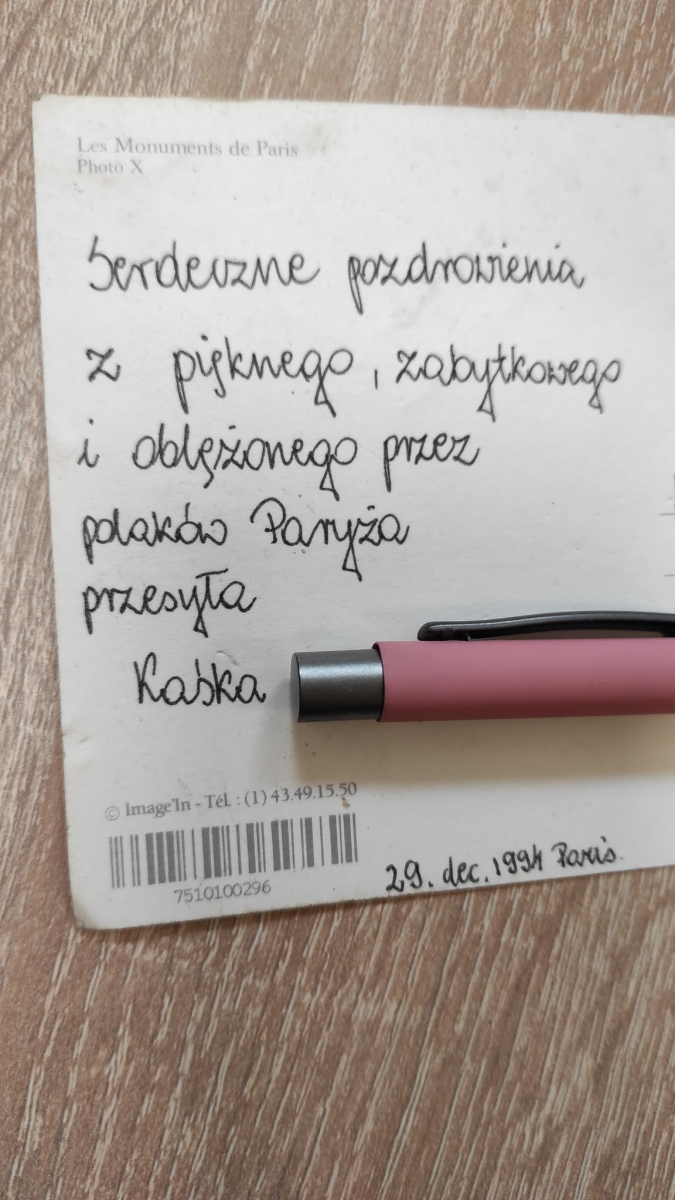 Les Monuments de Paris
Photo X
Serdeczne pozdrowienia
z pięknego, zabytkowego
i oblężonego przez
polaków Paryża
przesyła
Kaśka
© Image'In - Tél. : (1) 43.49.15.50
7510100296
29. dec. 1994 Paris.